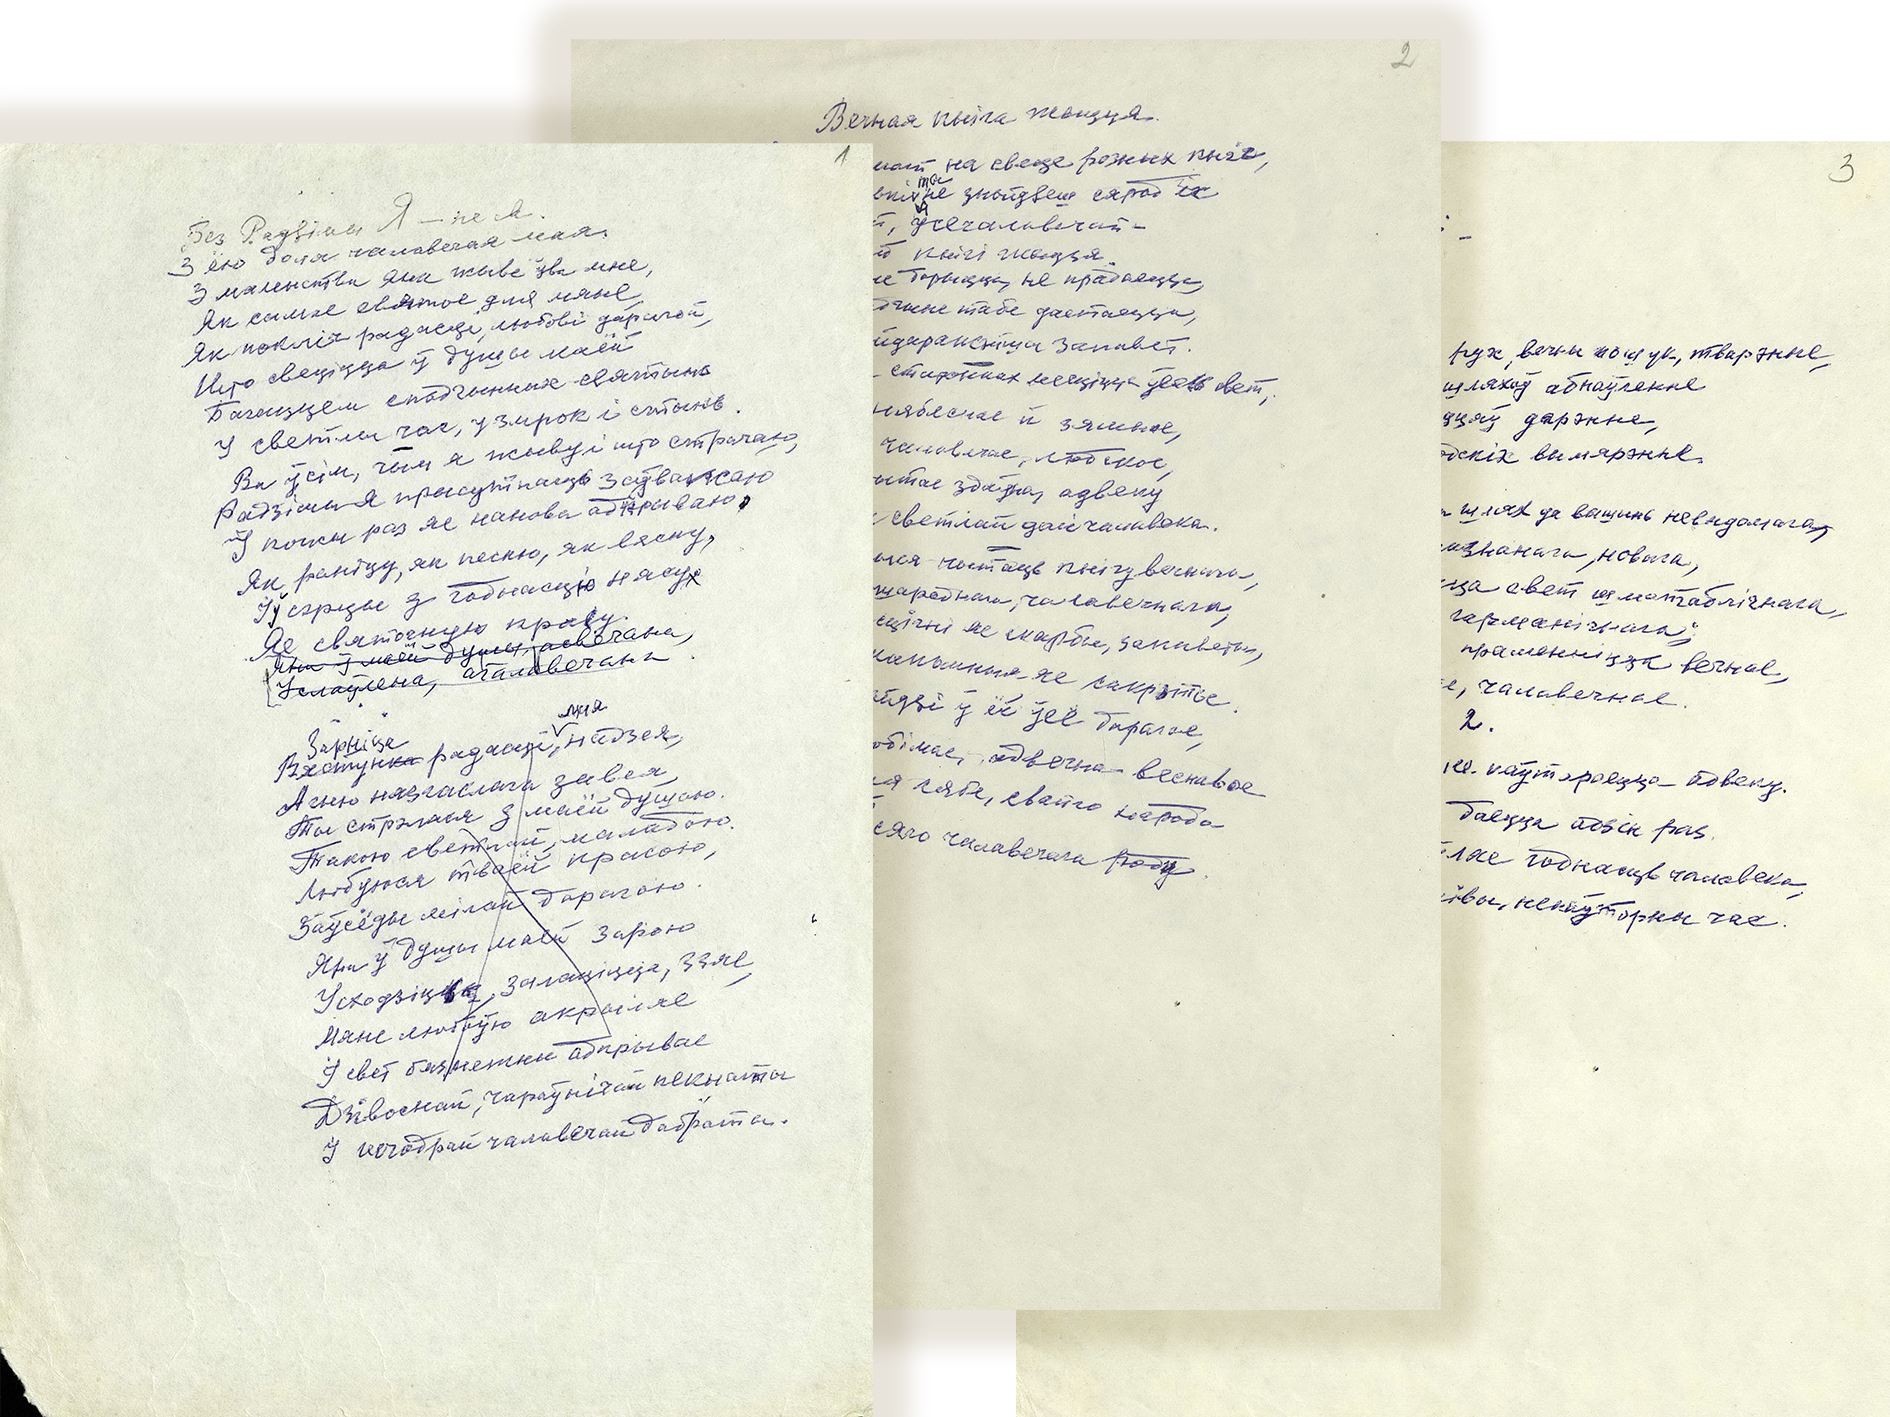 1
Без Радзімы Я – не я.
З ёю доля чалавечая мая.
З маленства яна жыве ўва мне,
Як самае святое для мяне,
Як покліч радасці, любові дарагой,
Што свеціцца ў душы маёй
Багаццем спадчынных святынь
У светлы час, у змрок і стынь.
Ва ўсім, чым я жыву і што страчаю,
Радзімы я прысутнасць заўважаю
І покы раз яе нанова адкрываю,
Як раніцу, як песню, як вясну,
І ў сэрцы з годнасцю нясу
Яе святочную красу.
Яна ў маёй душы, асвечана,
Услаўлена, ачалавечана.
Зарніца мая
Вястунка радасці, надзея,
Агню нязгаслага завея,
Ты стрэлася з маёй душою.
Такою светлай, маладою.
Любуюся тваёй красою,
Заўсёды мілай дарагою.
Яна ў душы маёй зарою
Усходзіць, залаціцца, ззяе,
Мяне любоўю акрыляе
І свет бязмежны адкрывае
Дзівоснай, чароўнічай пекнаты
І шчодрай чалавечай дабраты.
2
Вечная кніга жыцця.
на свеце розных кніг,
ты
не знойдзеш сярод іх
усечалавечай
кнігі жыцця.
не прадаецца,
табе дастаецца,
Запавет.
месціцца ўвесь свет,
нябеснае й зямное,
чалавечае, людское,
здаўна, адвеку
светлай дай чалавека.
кнігу вечную,
чалавечную,
яе скарбы, запаветы,
яе сакрэты.
ў ёй ўсё дарагое,
адвечна веснавое
сябе, свайго народа
чалавечага роду.
3
рух, вечны пошук, тварэнне,
шляхоў абнаўленне
дарэнне,
вымярэнне.
шлях да вышынь невядомага,
новага,
свет шматаблічнага,
гарманічнага,
праменніцца вечнае,
чалавечнае.
2.
не паўтараецца павеку.
даецца адзін раз.
годнасць чалавека,
непаўторны час.